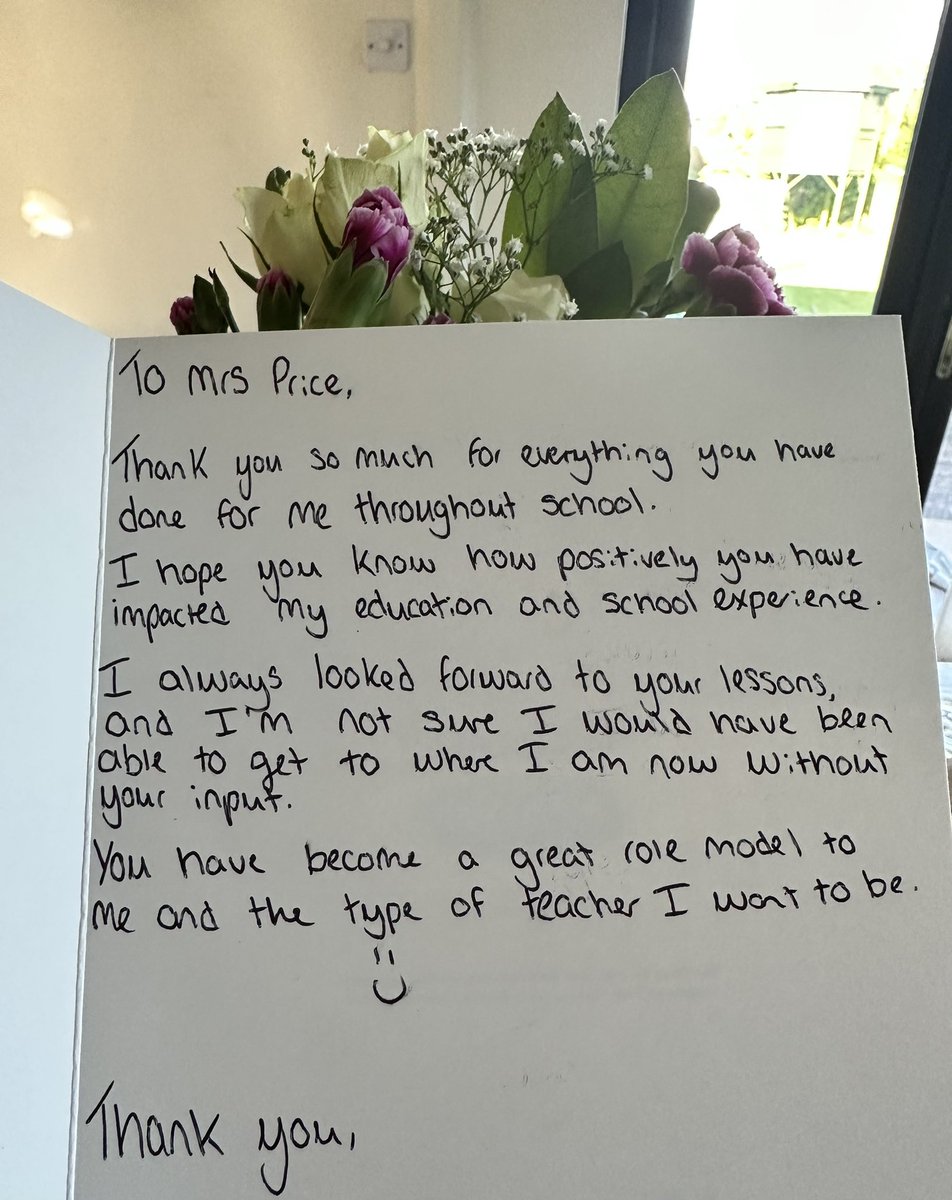 To Mrs Price,
Thank you so much for everything you have
done for me throughout school.
I hope you know how positively you have
impacted my education and school experience.
I always looked forward to your lessons,
and I'm not sure I would have been
able to get to where I am now without
your input.
You have become a great role model to
me and the type of teacher I want to be.
Thank you,